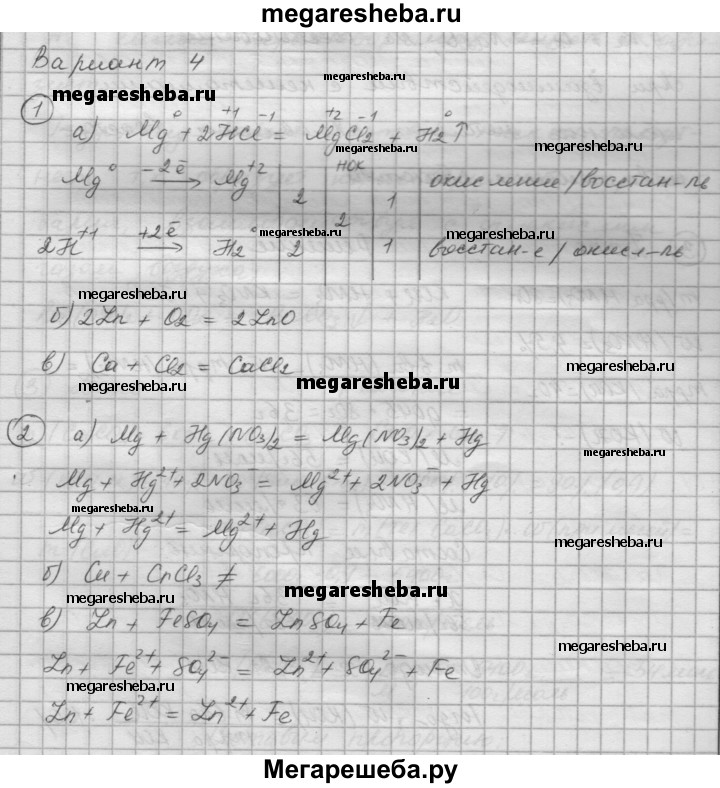 megaresheba.ru
Вариант 4
megaresheba.ru
megaresheba.ru
1
0 +1 -1 +2 -1 0
а) Mg + 2HCl = MgCl2 + H2↑
megaresheba.ru
megaresheba.ru
НОК
Mg⁰ –2ē→ Mg⁺² 2 1 окисление/восстан-ль
2
2H⁺¹ +2ē→ H2⁰ 2 1 восстан-е/окисл-ль
megaresheba.ru
megaresheba.ru
megaresheba.ru
б) 2Zn + O2 = 2ZnO
в) Ca + Cl2 = CaCl2
megaresheba.ru
megaresheba.ru
megaresheba.ru
2
а) Mg + Hg(NO3)2 = Mg(NO3)2 + Hg
megaresheba.ru
Mg + Hg²⁺ + 2NO3⁻ = Mg²⁺ + 2NO3⁻ + Hg
megaresheba.ru
Mg + Hg²⁺ = Mg²⁺ + Hg
megaresheba.ru
б) Cu + CrCl3 ≠
megaresheba.ru
megaresheba.ru
в) Zn + FeSO4 = ZnSO4 + Fe
megaresheba.ru
Zn + Fe²⁺ + SO4²⁻ = Zn²⁺ + SO4²⁻ + Fe
megaresheba.ru
Zn + Fe²⁺ = Zn²⁺ + Fe
Мегарешеба.ру